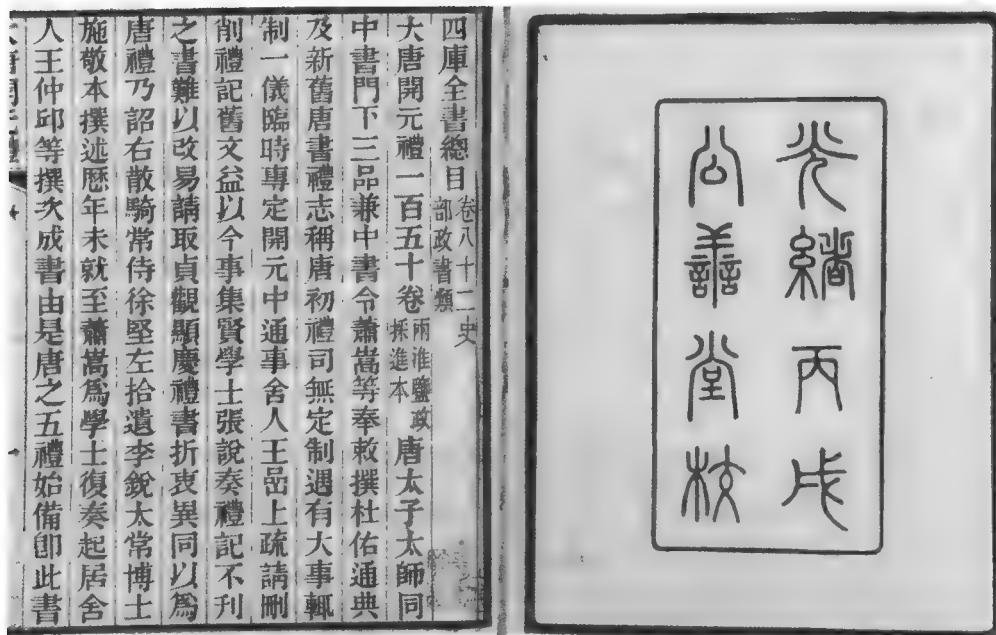 光緒丙戌
公善堂校
四庫全書總目卷八十二史
部政書類
大唐開元禮一百五十卷兩淮鹽政
採進本唐太子太師同
中書門下三品兼中書令蕭嵩等奉敕撰杜佑通典
及新舊唐書禮志稱唐初禮司無定制遇有大事輒
制一儀臨時專定開元中通事舍人王嵒上疏請刪
削禮記舊文益以今事集賢學士張說奏禮記不刊
之書難以改易請取貞觀顯慶禮書折衷異同以爲
唐禮乃詔右散騎常侍徐堅左拾遺李銳太常博士
施敬本撰述歷年未就至蕭嵩爲學士復奏起居舍
人王仲邱等撰次成書由是唐之五禮始備卽此書